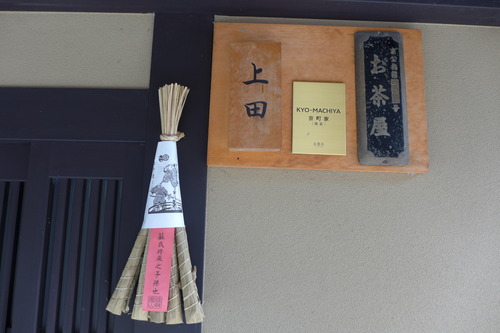 上田
KYO-MACHIYA
京町家
お茶屋
蘇民将来之子孫也